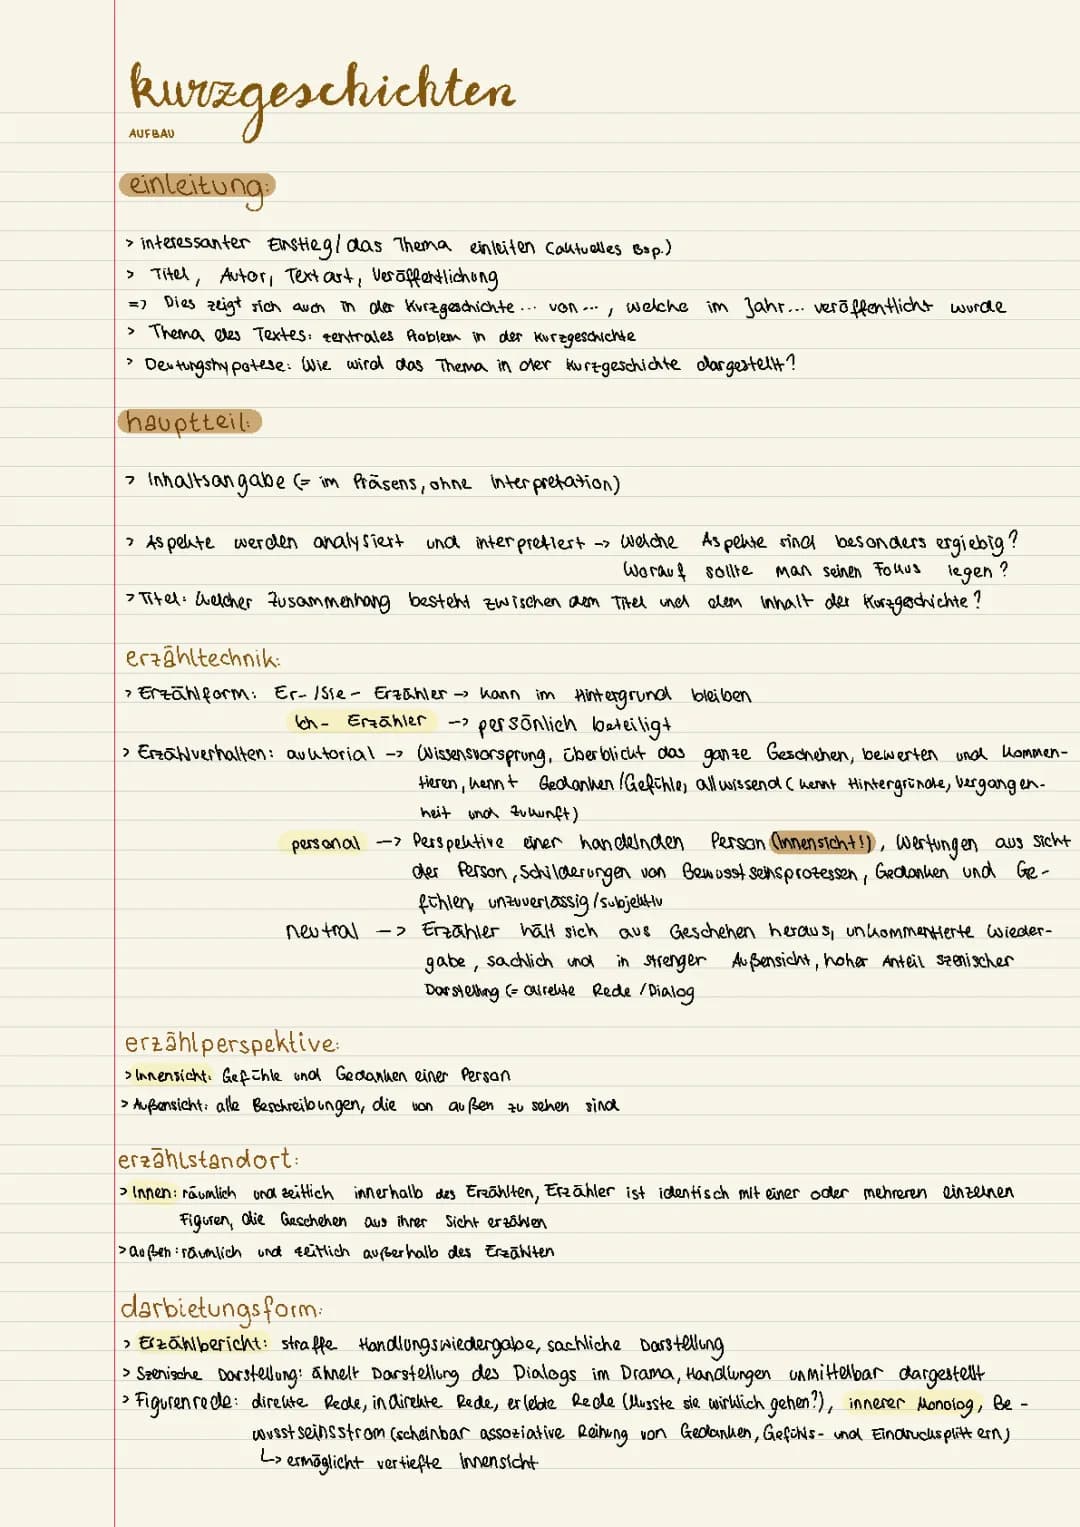 kurzgeschichten
AUFBAU
einleitung:
> interessanter Einstieg / das Thema einleiten (aktuelles Bsp.)
> Titel, Autor, Textart, Veröffentlichung
=> Dies zeigt sich auch in der Kurzgeschichte ... von ..., welche im Jahr... veröffentlicht wurde
> Thema des Textes: zentrales Problem in der Kurzgeschichte
> Deutungshypotese: Wie wird das Thema in der Kurzgeschichte dargestellt?
hauptteil:
> Inhaltsangabe (= im Präsens, ohne Interpretation)
> Aspekte werden analysiert und interpretiert -> Welche Aspekte sind besonders ergiebig?
Worauf sollte man seinen Fokus legen?
> Titel: Welcher Zusammenhang besteht zwischen dem Titel und dem Inhalt der Kurzgeschichte?
erzähltechnik:
> Erzählform: Er-/Sie- Erzähler -> kann im Hintergrund bleiben
Ich- Erzähler -> persönlich beteiligt
> Erzählverhalten: auktorial -> Wissensvorsprung, überblickt das ganze Geschehen, bewerten und kommen-
tieren, kennt Gedanken/Gefühle, allwissend (kennt Hintergründe, Vergangen-
heit und Zukunft)
personal -> Perspektive einer handelnden Person (Innensicht!), Wertungen aus Sicht
der Person, Schilderungen von Bewusstseinsprozessen, Gedanken und Ge-
fühlen, unzuverlässig/subjektiv
neutral -> Erzähler hält sich aus Geschehen heraus, unkommentierte Wieder-
gabe, sachlich und in strenger Außensicht, hoher Anteil szenischer
Darstellung (= direkte Rede / Dialog
erzählperspektive:
> Innensicht: Gefühle und Gedanken einer Person
> Außensicht: alle Beschreibungen, die von außen zu sehen sind
erzählstandort:
> Innen: räumlich und zeitlich innerhalb des Erzählten, Erzähler ist identisch mit einer oder mehreren einzelnen
Figuren, die Geschehen aus ihrer Sicht erzählen
> außen: räumlich und zeitlich außerhalb des Erzählten
darbietungsform:
> Erzählbericht: straffe Handlungswiedergabe, sachliche Darstellung
> Szenische Darstellung: ähnelt Darstellung des Dialogs im Drama, Handlungen unmittelbar dargestellt
> Figurenrede: direkte Rede, indirekte Rede, erlebte Rede (Musste sie wirklich gehen?), innerer Monolog, Be-
wusstseinsstrom (scheinbar assoziative Reihung von Gedanken, Gefühls- und Eindruckssplittern)
↳ ermöglicht vertiefte Innensicht